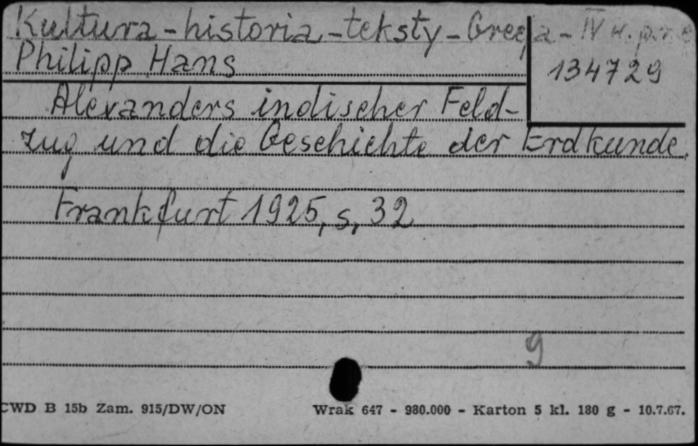 Kultura - historia - teksty - Grecja - IV w. p.n.e
Philipp Hans
134729
Alexanders indischer Feld-
zug und die Geschichte der Erdkunde.
Frankfurt 1925, s, 32
9
CWD B 15b Zam. 915/DW/ON Wrak 647 - 980.000 - Karton 5 kl. 180 g - 10.7.67.